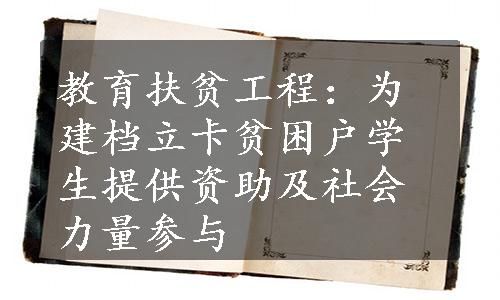 教育扶贫工程：为
建档立卡贫困户学
生提供资助及社会
力量参与